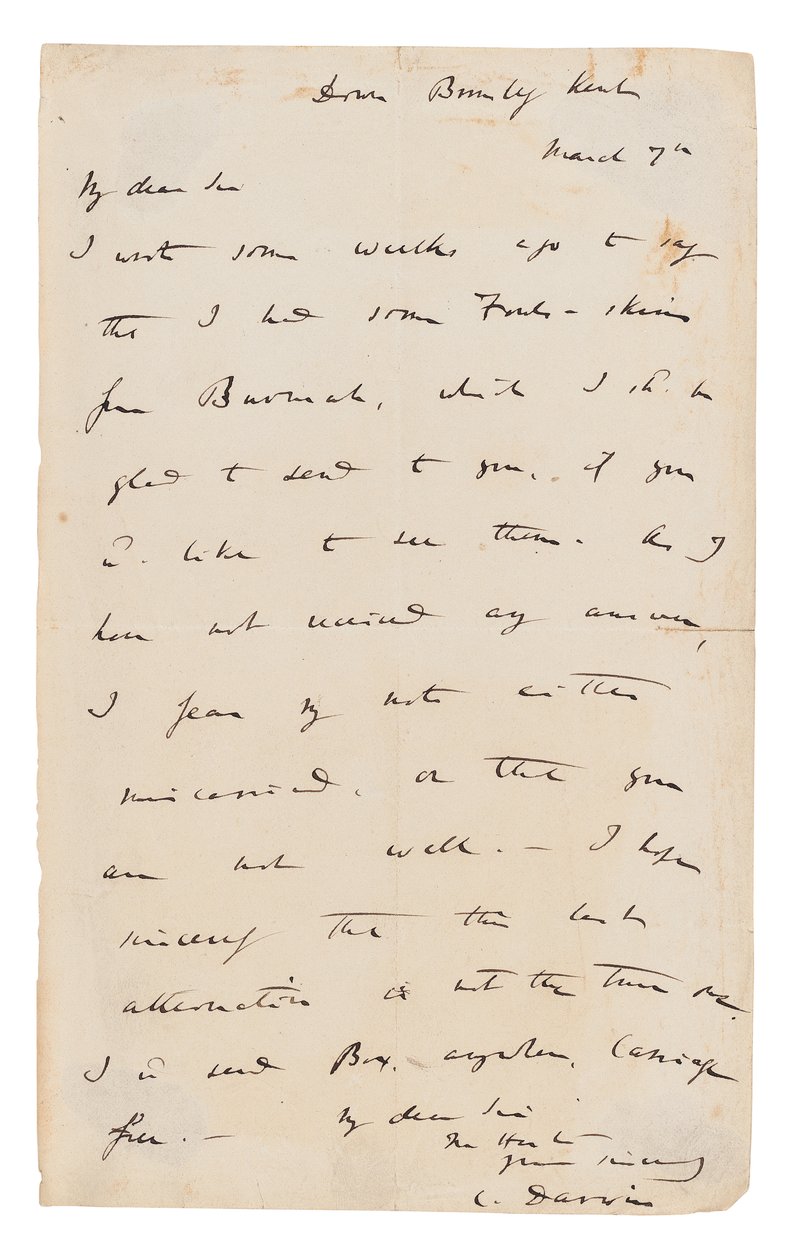 Down Bromley Kent
March 7th
My dear Sir
I wrote some weeks ago to say
that I had some Fowls-skins
from Burmah, which I shd. be
glad to send to you, if you
wd. like to see them. As I
have not received any answer,
I fear my note either
miscarried, or that you
are not well. — I hope
sincerely that this last
alternative is not the true one.
I wd send Box, anywhere, Carriage
free. — My dear Sir
Yours sincerely
C. Darwin